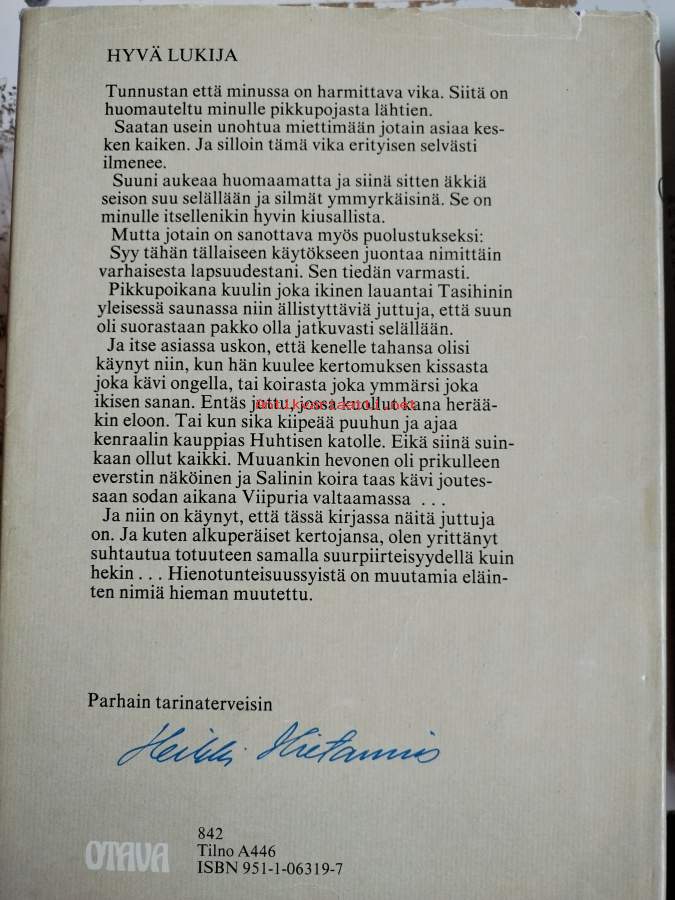 HYVÄ LUKIJA
Tunnustan että minussa on harmittava vika. Siitä on
huomauteltu minulle pikkupojasta lähtien.
Saatan usein unohtua miettimään jotain asiaa kes-
ken kaiken. Ja silloin tämä vika erityisen selvästi
ilmenee.
Suuni aukeaa huomaamatta ja siinä sitten äkkiä
seison suu selällään ja silmät ymmyrkäisinä. Se on
minulle itsellenikin hyvin kiusallista.
Mutta jotain on sanottava myös puolustukseksi:
Syy tähän tällaiseen käytökseen juontaa nimittäin
varhaisesta lapsuudestani. Sen tiedän varmasti.
Pikkupoikana kuulin joka ikinen lauantai Tasihinin
yleisessä saunassa niin ällistyttäviä juttuja, että suun
oli suorastaan pakko olla jatkuvasti selällään.
Ja itse asiassa uskon, että kenelle tahansa olisi
käynyt niin, kun hän kuulee kertomuksen kissasta
joka kävi ongella, tai koirasta joka ymmärsi joka
ikisen sanan. Entäs juttu, jossa kuollut kana herää-
antikvariaatti.net
kin eloon. Tai kun sika kiipeää puuhun ja ajaa
kenraalin kauppias Huhtisen katolle. Eikä siinä suin-
kaan ollut kaikki. Muuankin hevonen oli prikulleen
everstin näköinen ja Salinin koira taas kävi joutes-
saan sodan aikana Viipuria valtaamassa ...
Ja niin on käynyt, että tässä kirjassa näitä juttuja
on. Ja kuten alkuperäiset kertojansa, olen yrittänyt
suhtautua totuuteen samalla suurpiirteisyydellä kuin
hekin... Hienotunteisuussyistä on muutamia eläin-
ten nimiä hieman muutettu.
Parhain tarinaterveisin
Heikki Hietamies
OTAVA
842
Tilno A446
ISBN 951-1-06319-7